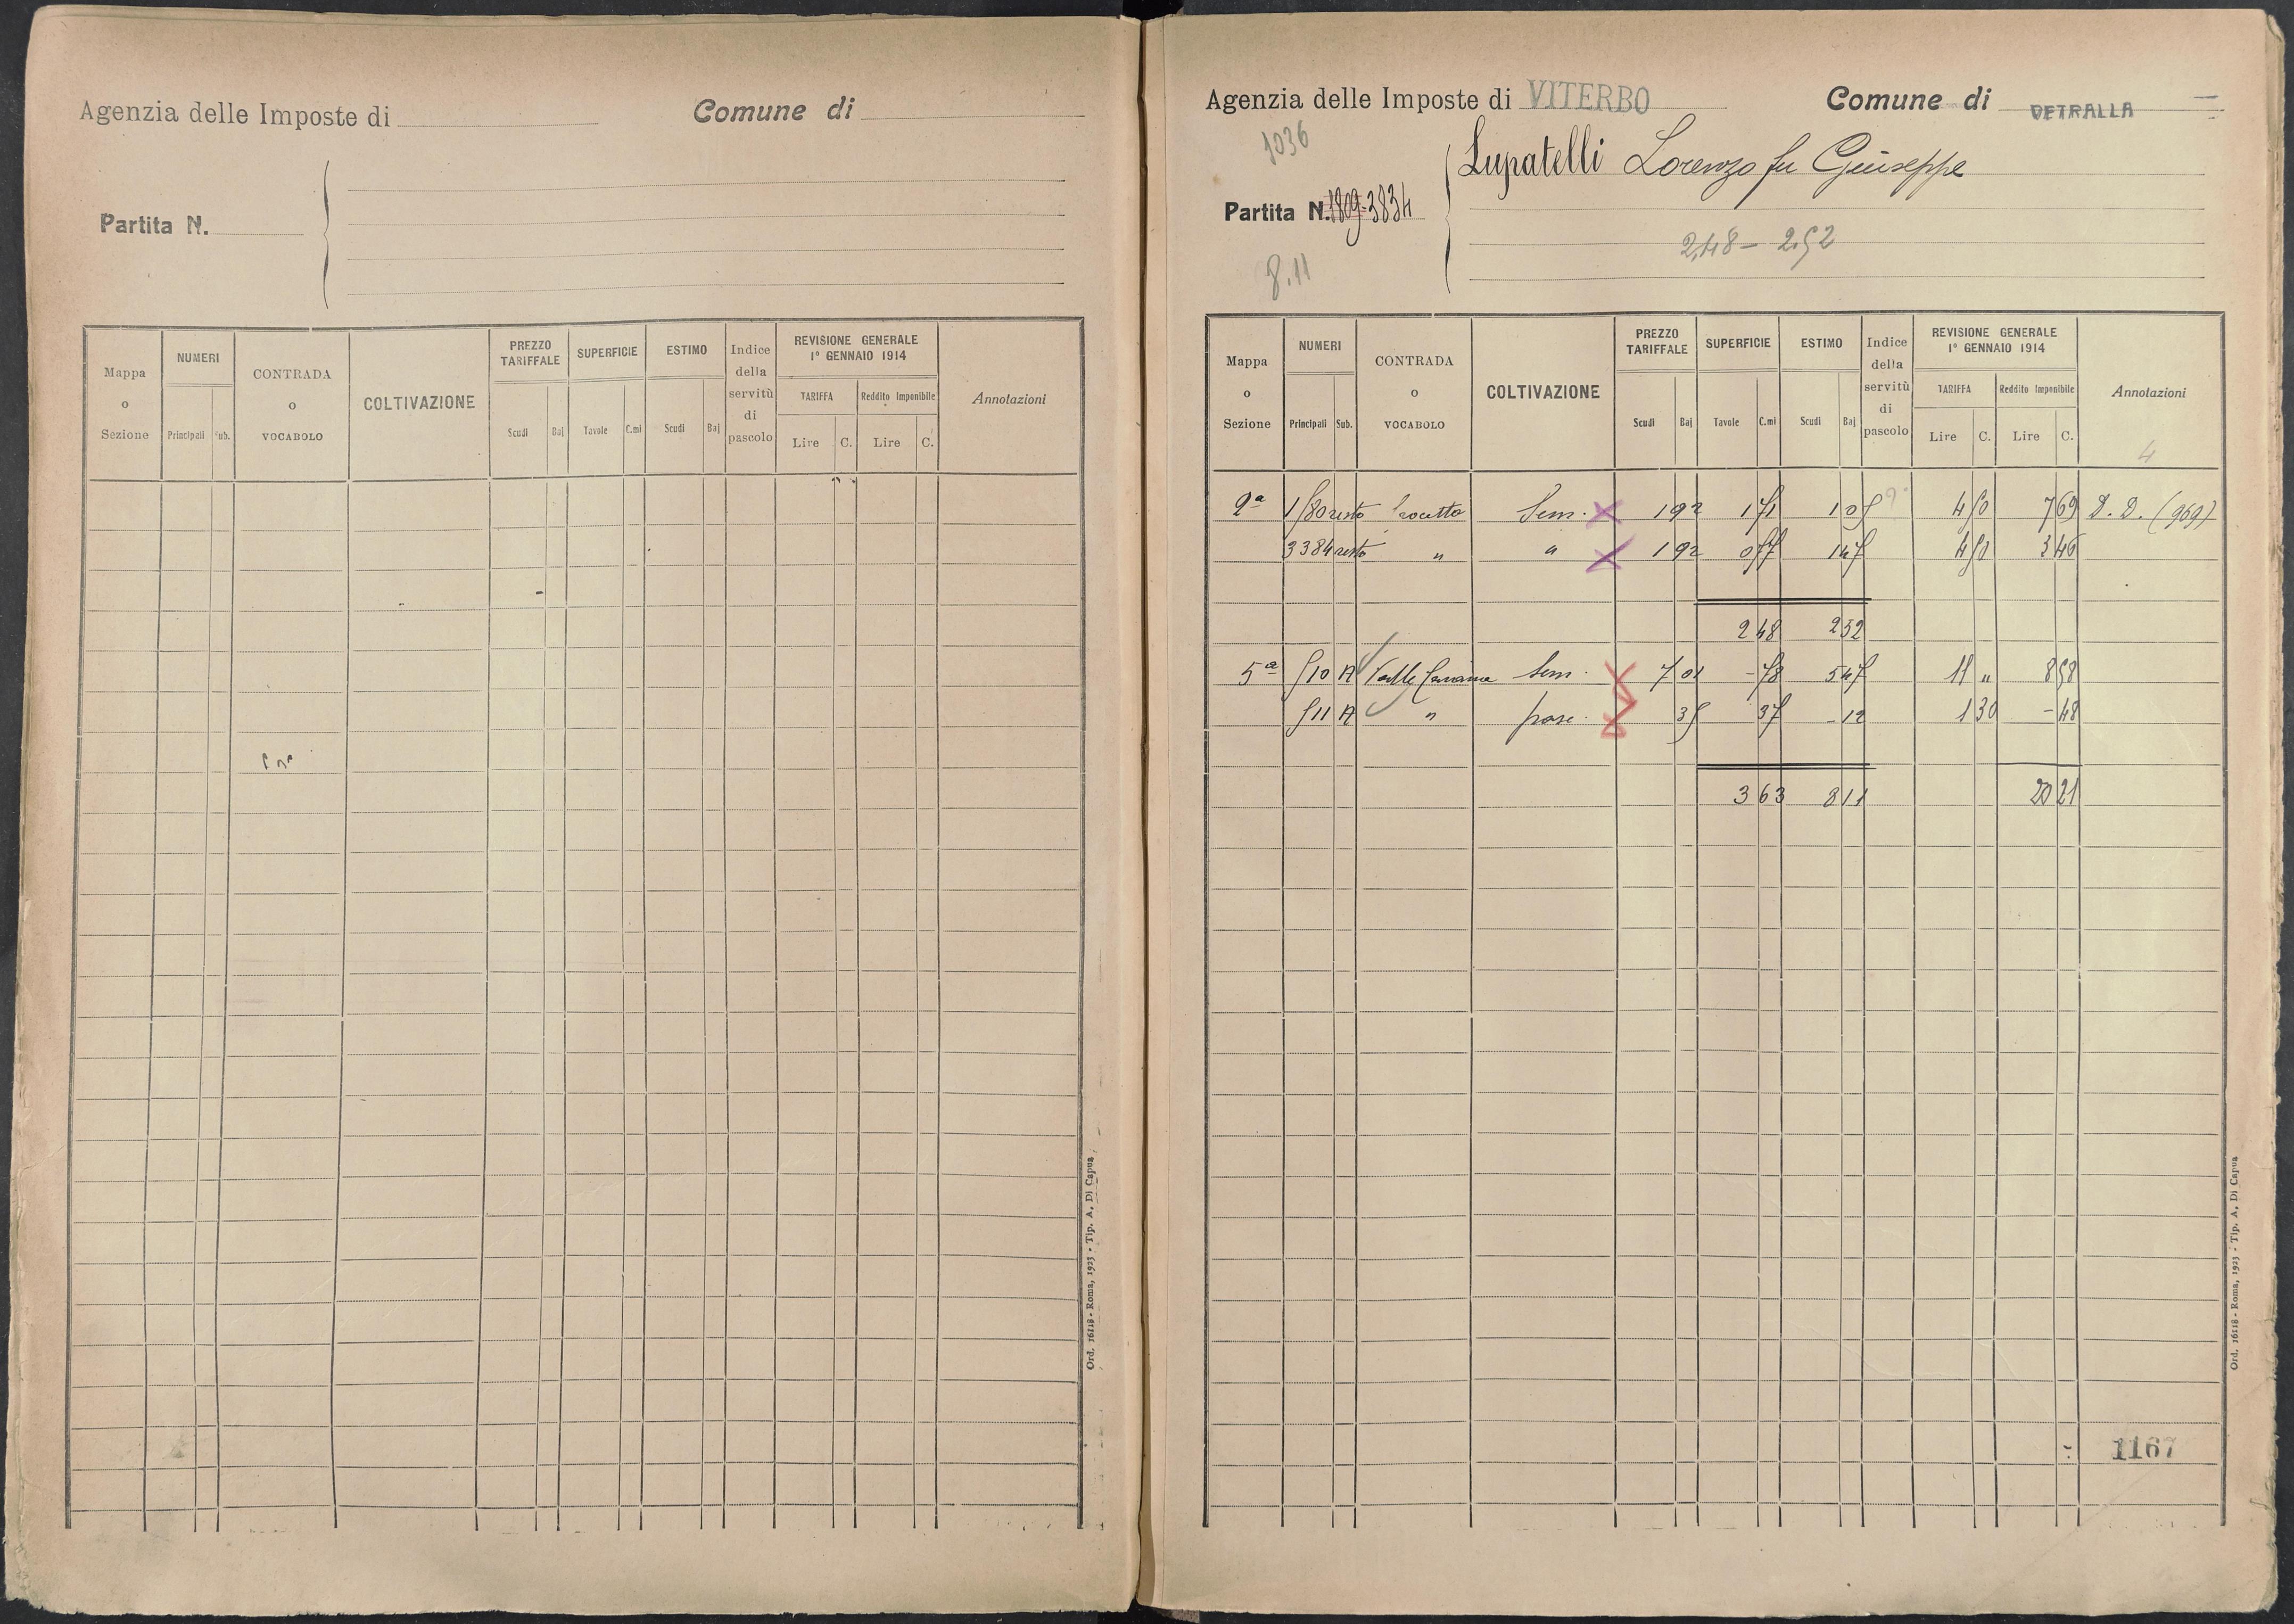 Agenzia delle Imposte di
Comune di
Partita N.
Mappa o Sezione
NUMERI
Principali
Sub.
CONTRADA o VOCABOLO
COLTIVAZIONE
PREZZO TARIFFALE
Scudi
Baj
SUPERFICIE
Tavole
C.mi
ESTIMO
Scudi
Baj
Indice della servitù di pascolo
REVISIONE GENERALE
1° GENNAIO 1914
TARIFFA
Reddito Imponibile
Lire C. Lire C.
Annotazioni
Ord. 16118 - Roma, 1923 - Tip. A. Di Capua
Agenzia delle Imposte di VITERBO
Comune di VETRALLA
1036
Lupatelli Lorenzo fu Giuseppe
Partita N. 1809-3834
2,48 - 2.52
8.11
Mappa o Sezione
NUMERI
Principali
Sub.
CONTRADA o VOCABOLO
COLTIVAZIONE
PREZZO TARIFFALE
Scudi
Baj
SUPERFICIE
Tavole
C.mi
ESTIMO
Scudi
Baj
Indice della servitù di pascolo
REVISIONE GENERALE
1° GENNAIO 1914
TARIFFA
Reddito Imponibile
Lire C. Lire C.
Annotazioni
4
2a resto Sem. 1 92 1 71 1 05 4 50 7 69 D. D. (969)
3384 resto " " 1 92 0 77 1 47 4 50 3 46
2 48 2 52
5a 510 A Valle Sem. 7 01 - 78 5 47 11 " 8 58
511 A " pasc. 35 37 - 12 1 30 - 48
3 63 8 11 20 21
1167
Ord. 16118 - Roma, 1923 - Tip. A. Di Capua